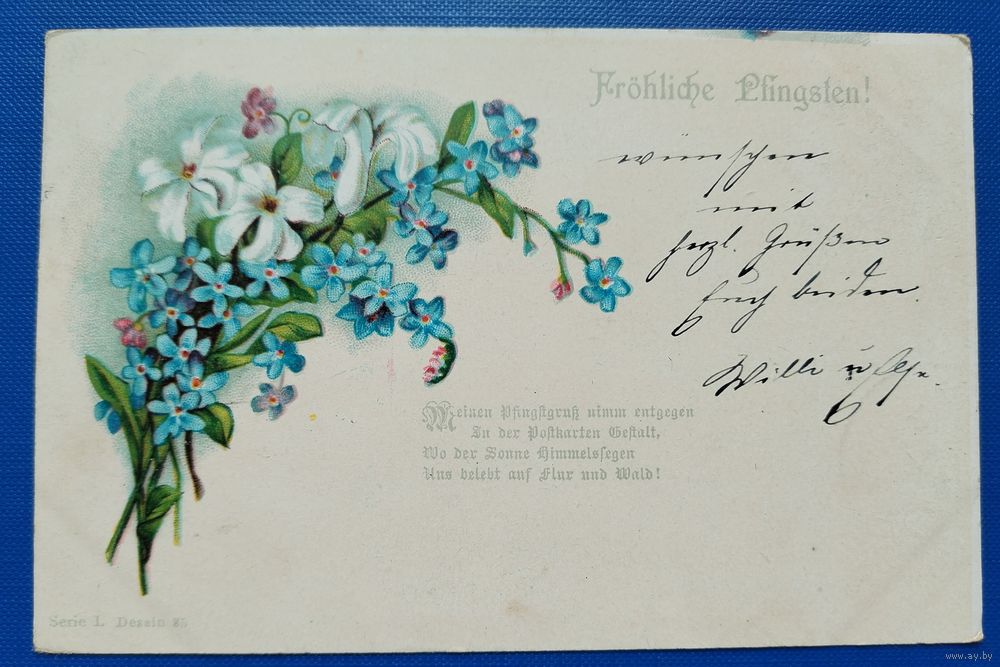 Fröhliche Pfingsten!
wünschen
mit
herzl. Grüßen
Euch beiden.
Willi u.
Meinen Pfingstgruß nimm entgegen
In der Postkarten Gestalt,
Wo der Sonne Himmelssegen
Uns belebt auf Flur und Wald!
Serie I. Dessin 85
www.ay.by